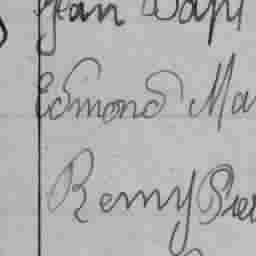 Jean Bapt
Edmond Ma
Remy Pier